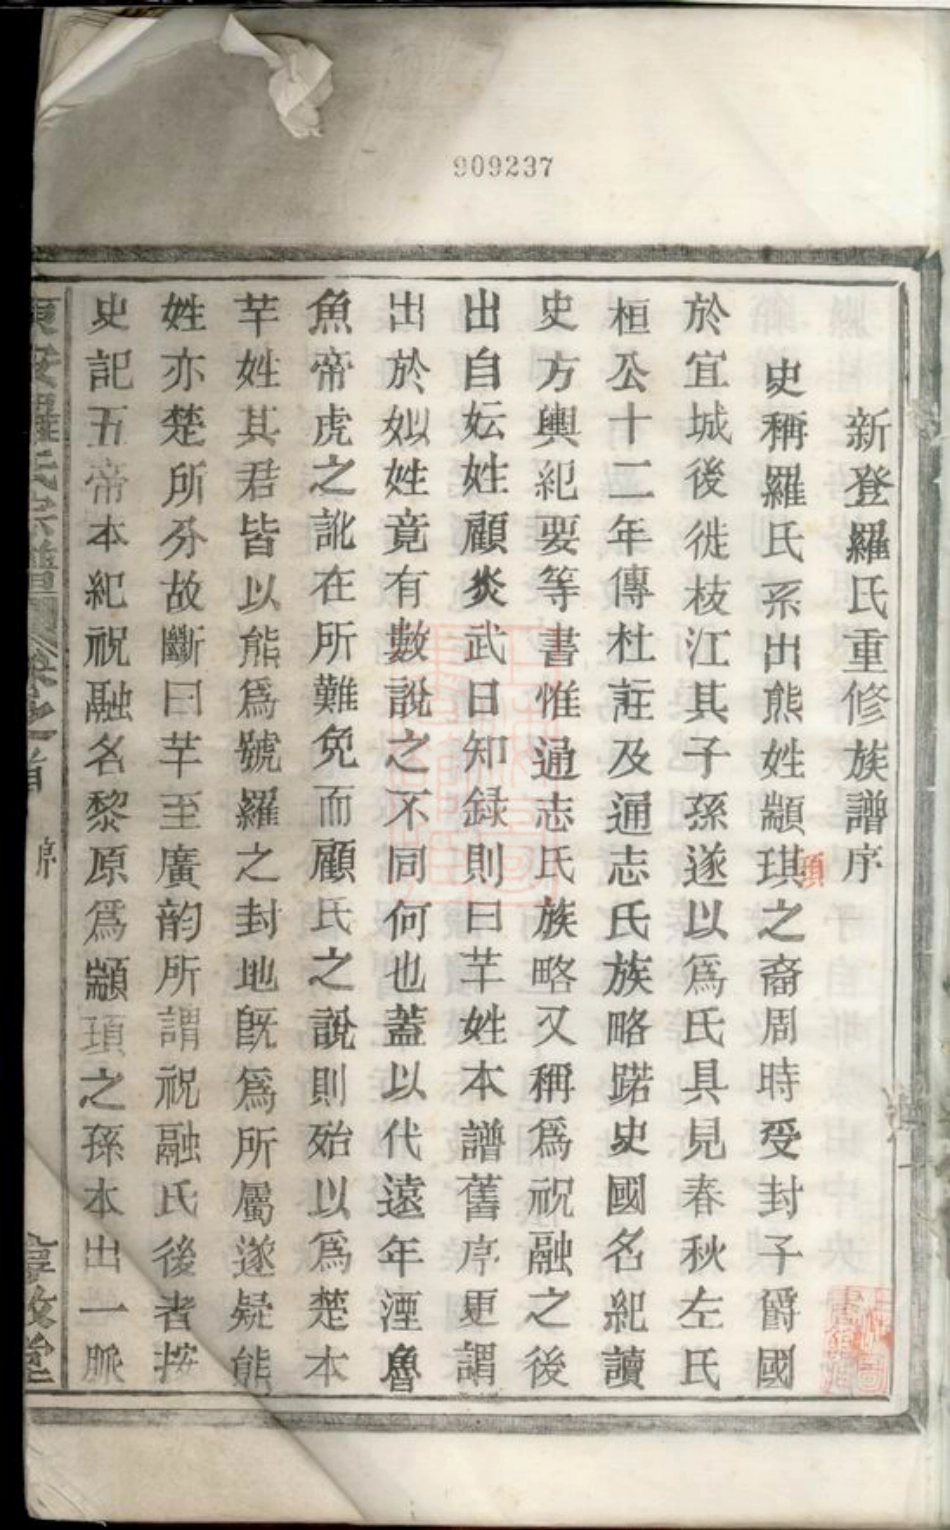 909237
新登羅氏重修族譜序
史稱羅氏系出熊姓顓琪之裔周時受封子爵國
項
於宜城後徙枝江其子孫遂以爲氏具見春秋左氏
桓公十二年傳杜註及通志氏族略路史國名紀讀
史方輿紀要等書惟通志氏族略又稱爲祝融之後
出自妘姓顧炎武日知録則曰芉姓本譜舊序更謂
出於姒姓竟有數說之不同何也蓋以代遠年湮魯
魚帝虎之訛在所難免而顧氏之說則殆以爲楚本
芉姓其君皆以熊爲號羅之封地旣爲所屬遂疑熊
姓亦楚所分故斷曰芉至廣韵所謂祝融氏後者按
史記五帝本紀祝融名黎原爲顓頊之孫本出一脈
羅氏宗譜 卷之首 序